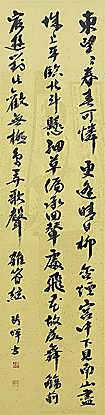 東望望春春可憐更逢晴日柳含煙宮中下見南山盡
城上平臨北斗懸細草偏承回輦處飛花故落舞觴前
宸遊對此歡無極鳥弄歌聲雜管絃